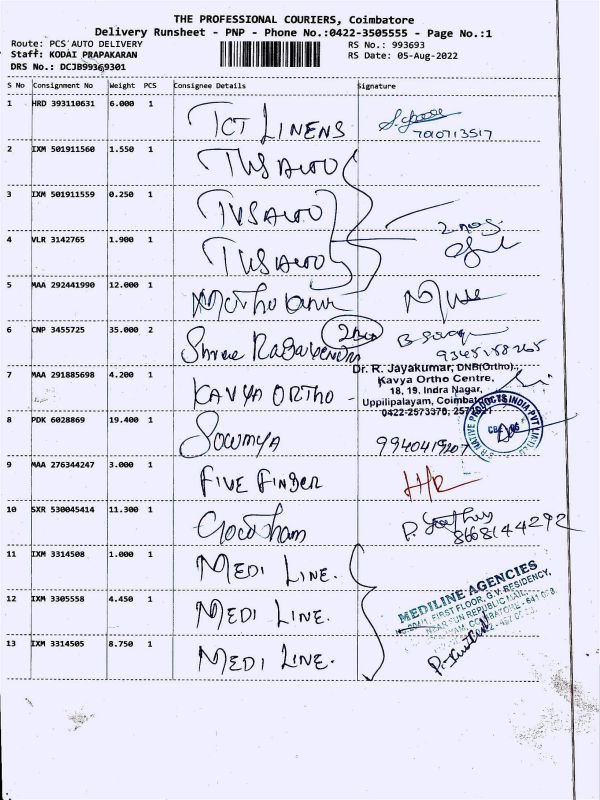 THE PROFESSIONAL COURIERS, Coimbatore
Delivery Runsheet - PNP - Phone No.:0422-3505555 - Page No.:1
Route: PCS AUTO DELIVERY RS No.: 993693
Staff: KODAI PRAPAKARAN RS Date: 05-Aug-2022
DRS No.: DCJB99369301
S No Consignment No Weight PCS Consignee Details Signature
1 HRD 393110631 6.000 1 TCT LINENS
7010713517
2 IXM 501911560 1.550 1 TVS AUTO
3 IXM 501911559 0.250 1 TVS AUTO 2 nos
4 VLR 3142765 1.900 1 TVS AUTO
5 MAA 292441990 12.000 1
6 CNP 3455725 35.000 2 Shree Ragavendra
7 MAA 291885698 4.200 1 KAVYA ORTHO -
Dr. R. Jayakumar, DNB(Ortho).,
Kavya Ortho Centre,
18, 19. Indra Nagar,
Uppilipalayam, Coimbatore
0422-2573370,
8 PDK 6028869 19.400 1 Sowmya 9940419207
9 MAA 276344247 3.000 1 FIVE FINGER
10 SXR 530045414 11.300 1
8668144292
11 IXM 3314508 1.000 1 MEDI LINE.
12 IXM 3305558 4.450 1 MEDI LINE.
13 IXM 3314505 8.750 1 MEDI LINE.
MEDILINE AGENCIES
FIRST FLOOR, G.V. RESIDENCY,
NEAR SUN REPUBLIC MAIL,